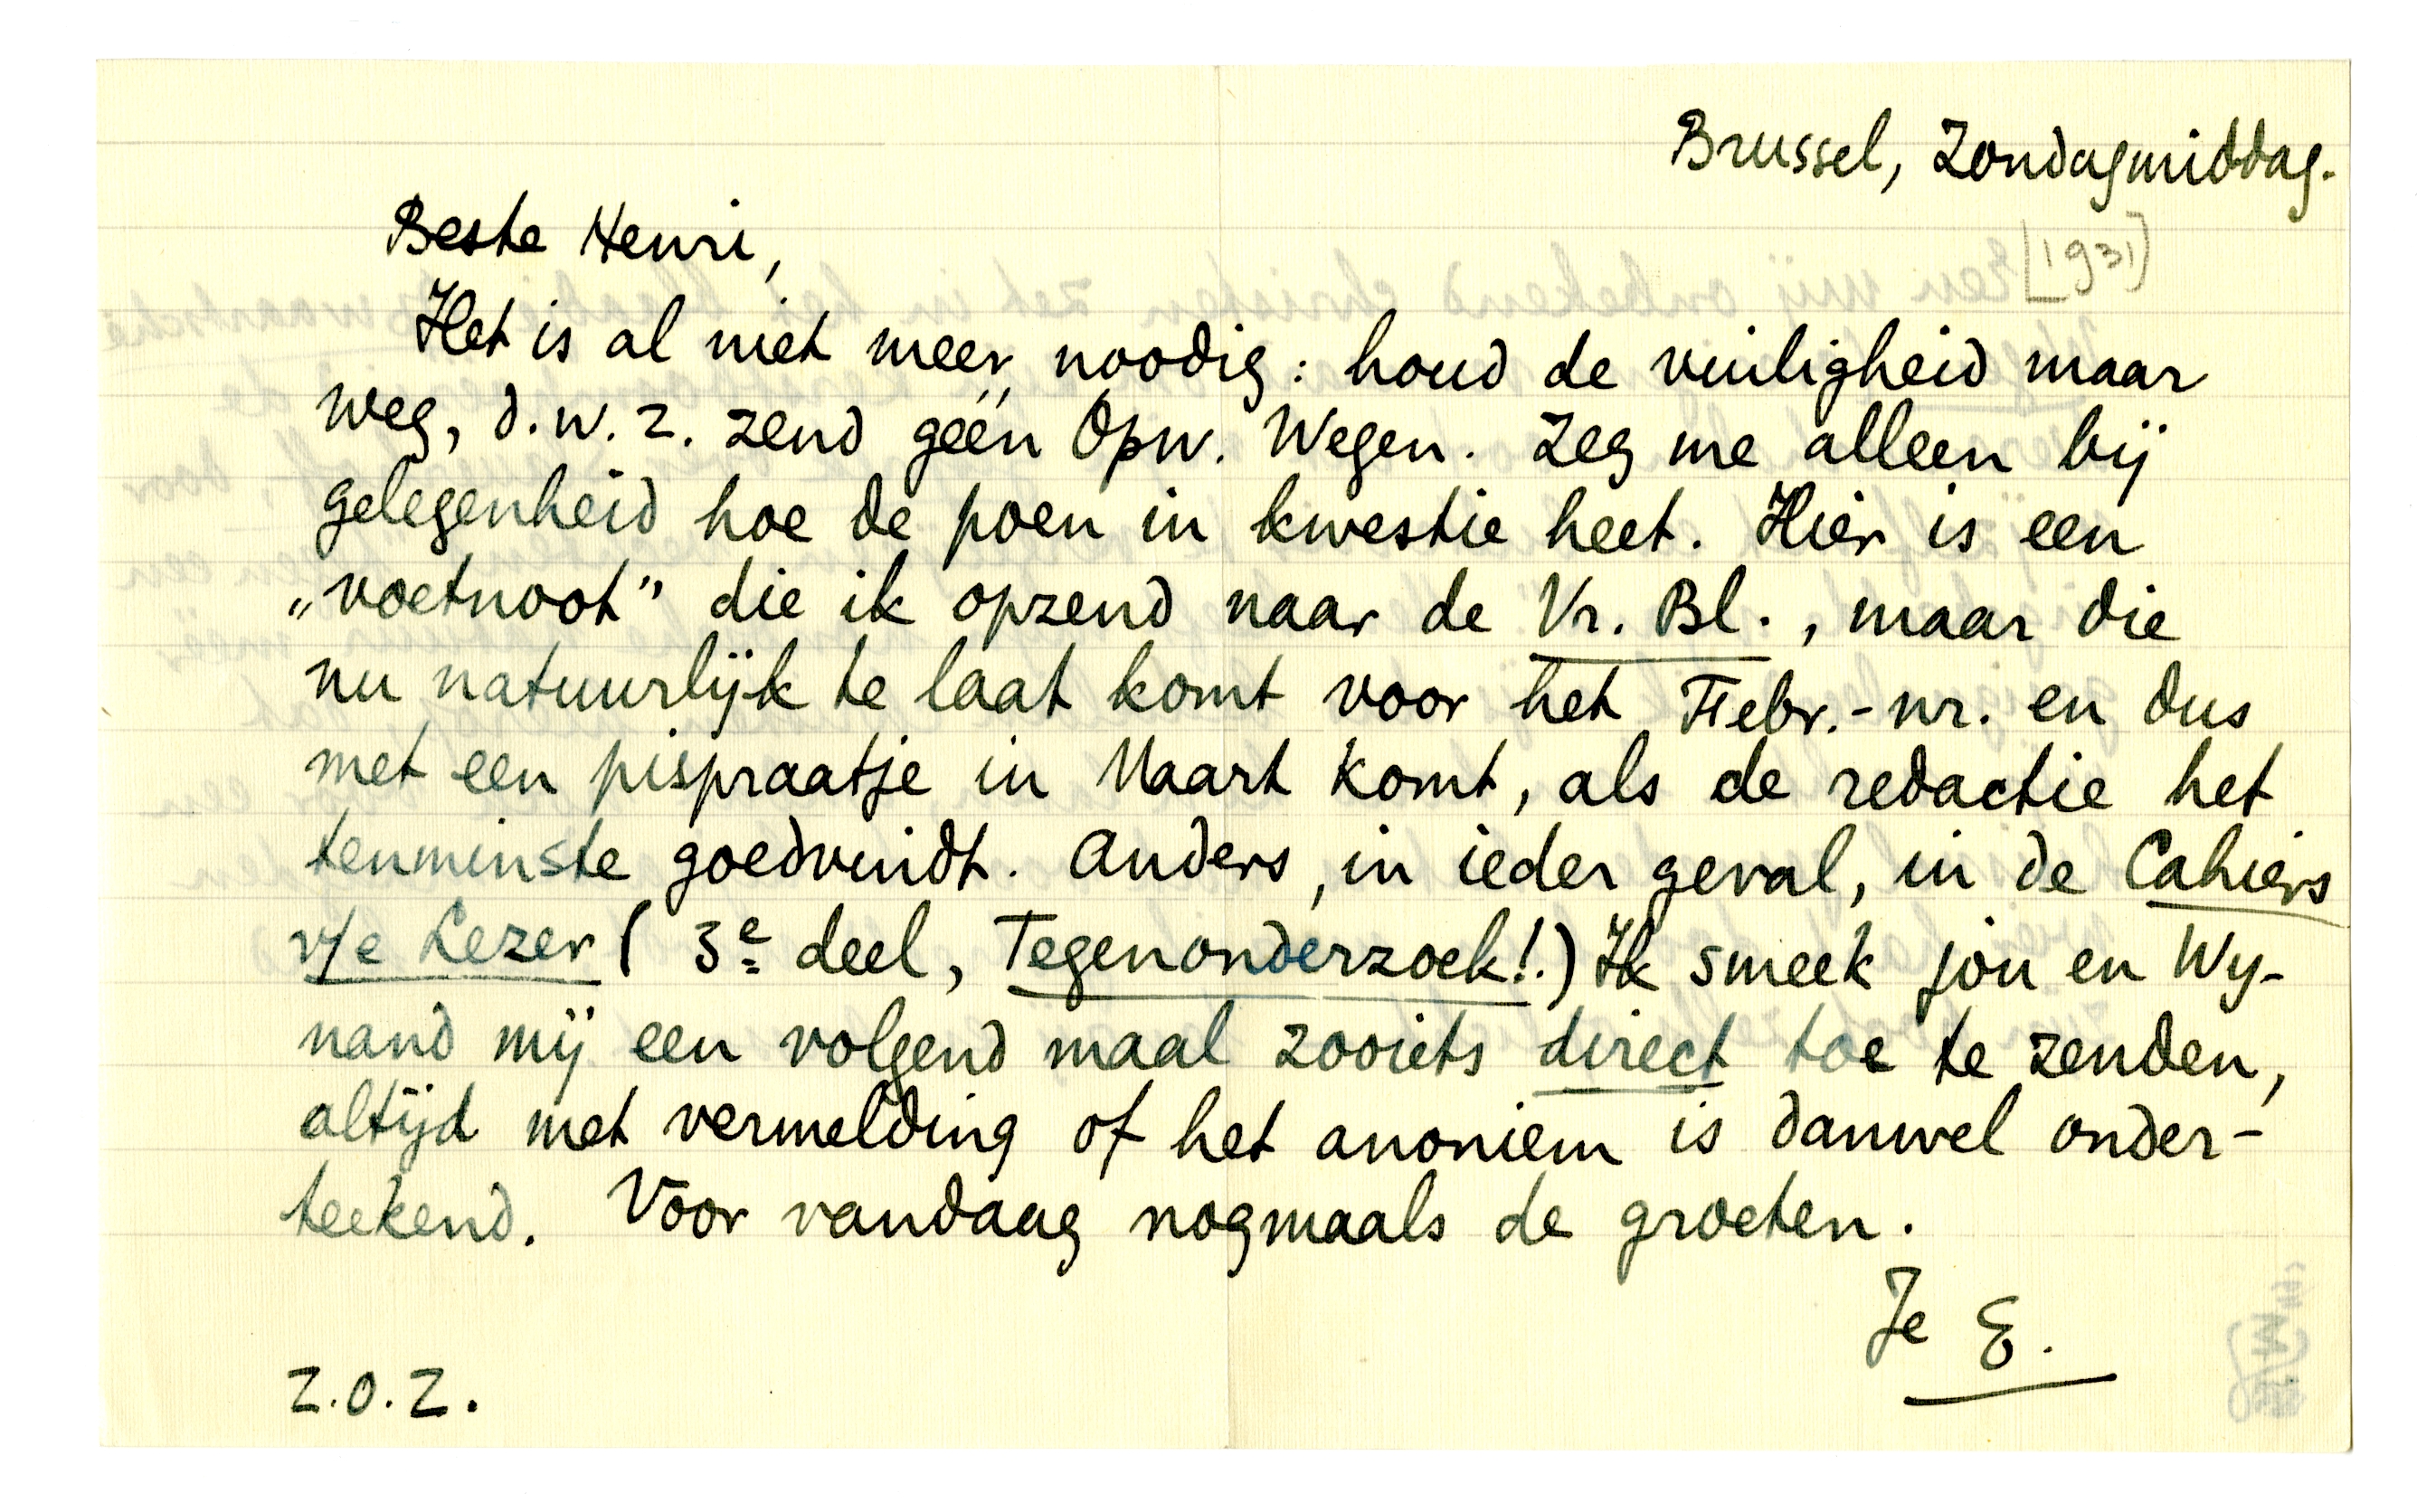 Brussel, Zondagmiddag.
[1931]
Beste Henri,
Het is al niet meer noodig: houd de vuiligheid maar
weg, d.w.z. zend géén Opw. Wegen. Zeg me alleen bij
gelegenheid hoe de poen in kwestie heet. Hier is een
„voetnoot” die ik opzend naar de Vr. Bl., maar die
nu natuurlijk te laat komt voor het Febr.-nr. en dus
met een pispraatje in Maart komt, als de redactie het
tenminste goedvindt. Anders, in ieder geval, in de Cahiers
v/e Lezer (3e deel, Tegenonderzoek!.) Ik smeek jou en Wy-
nand mij een volgend maal zooiets direct toe te zenden,
altijd met vermelding of het anoniem is danwel onder-
teekend. Voor vandaag nogmaals de groeten.
Je E.
Z.O.Z.